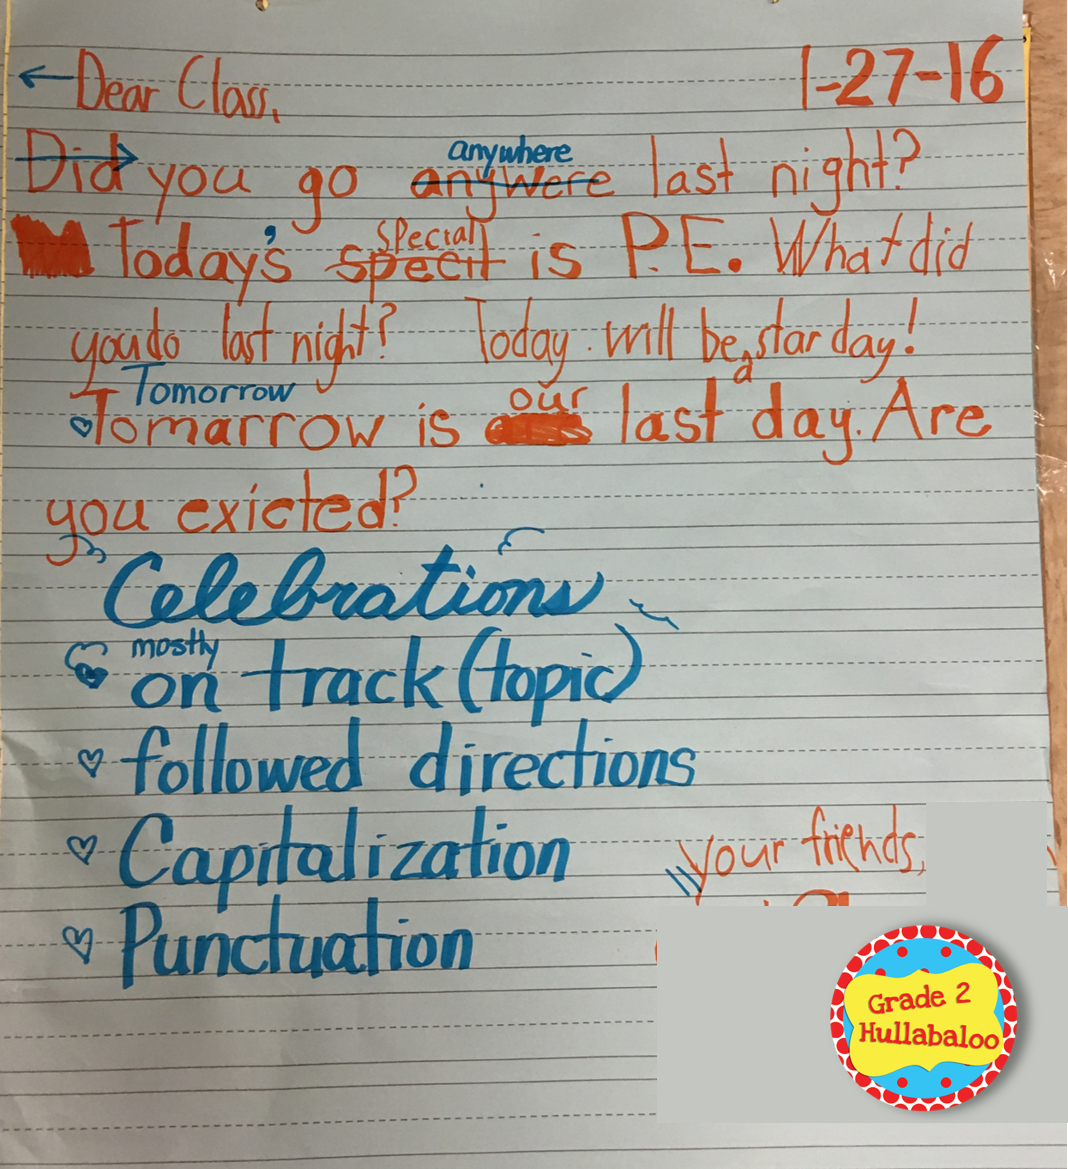 ← Dear Class, 1-27-16
anywhere
Did you go anywere last night?
special
Today's specil is P.E. What did
you do last night? Today will be a star day!
Tomorrow our
Tomarrow is last day. Are
you exicted?
Celebrations
mostly
on track (topic)
followed directions
Capitalization
your friends,
Punctuation
Grade 2
Hullabaloo